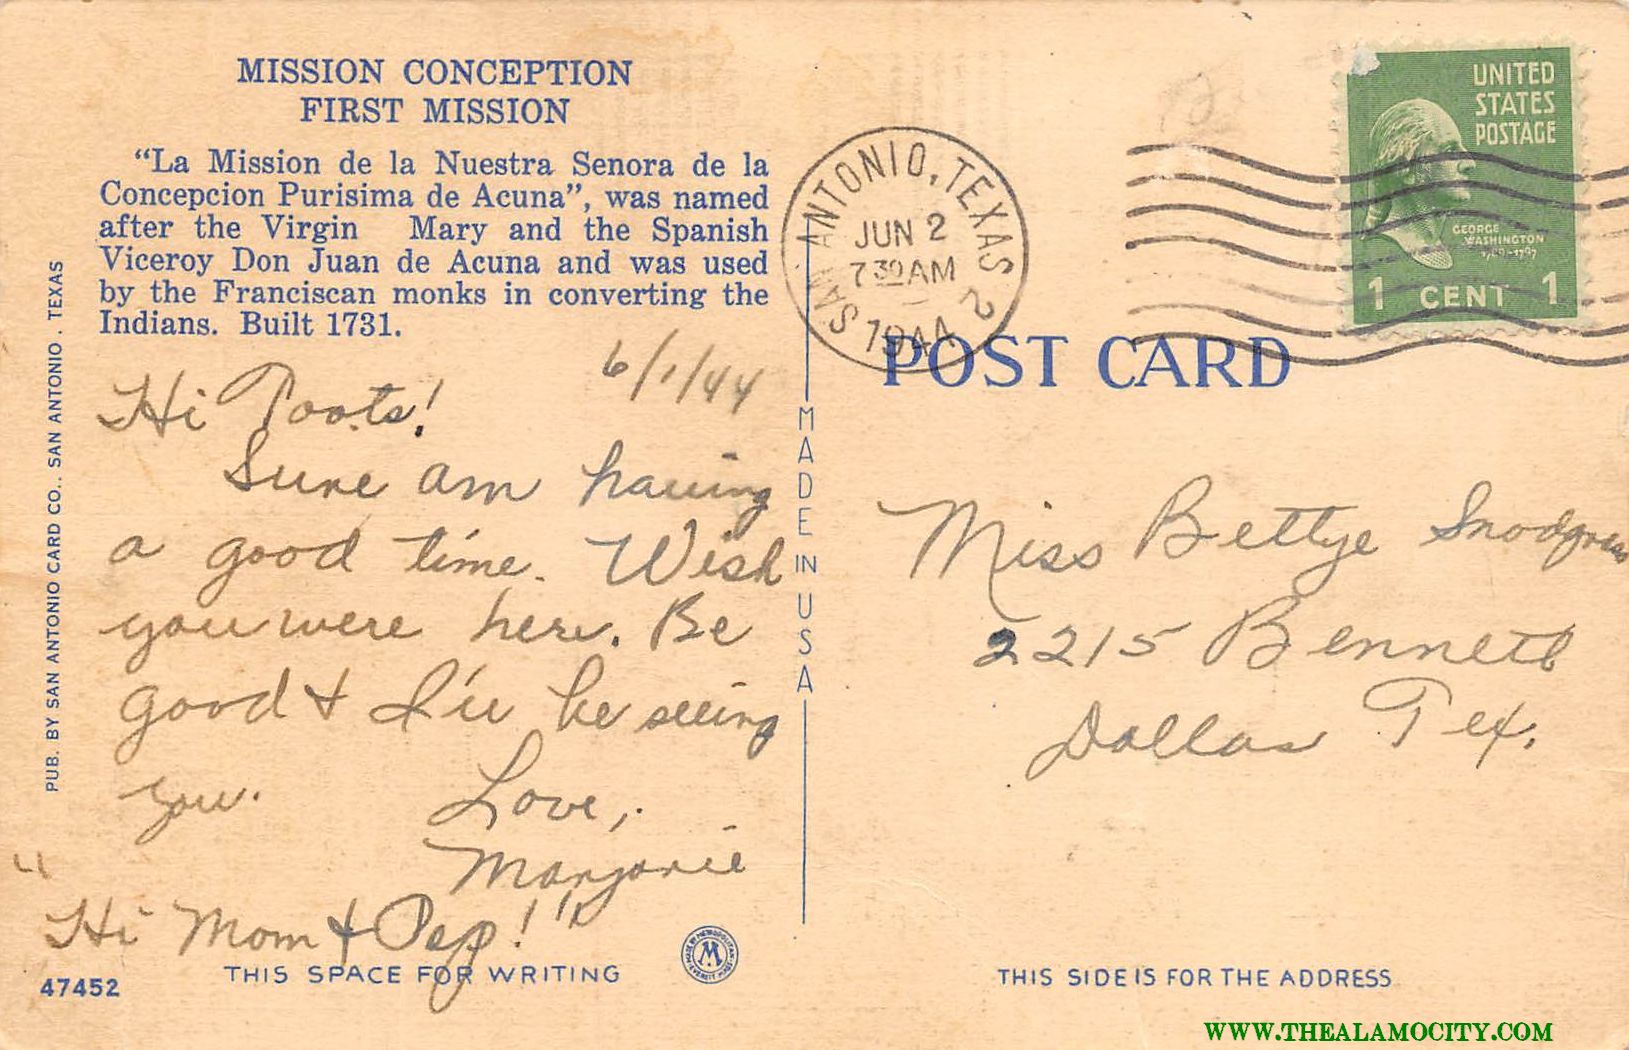 MISSION CONCEPTION
FIRST MISSION
"La Mission de la Nuestra Senora de la
Concepcion Purisima de Acuna", was named
after the Virgin Mary and the Spanish
Viceroy Don Juan de Acuna and was used
by the Franciscan monks in converting the
Indians. Built 1731.
6/1/44
Hi Toots!
Sure am having
a good time. Wish
you were here. Be
good & I'll be seeing
you.
Love,
Marjorie
"Hi Mom & Pep!"
THIS SPACE FOR WRITING
47452
PUB. BY SAN ANTONIO CARD CO., SAN ANTONIO, TEXAS
MADE IN USA
SAN ANTONIO, TEXAS 2
JUN 2
7 30 AM
1944
UNITED
STATES
POSTAGE
GEORGE
WASHINGTON
1789-1797
1 CENT 1
POST CARD
Miss Bettye Snodgrass
2215 Bennett
Dallas Tex.
THIS SIDE IS FOR THE ADDRESS
MADE BY METROPOLITAN
M
EVERETT MASS
WWW.THEALAMOCITY.COM